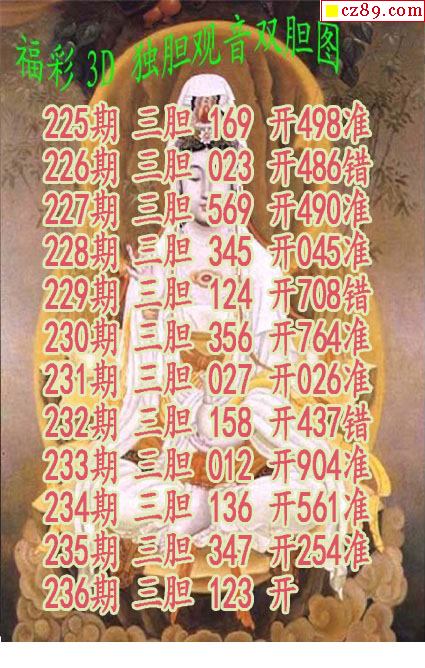 cz89.com
福彩 3D 独胆观音双胆图
225期 三胆 169 开498准
226期 三胆 023 开486错
227期 三胆 569 开490准
228期 三胆 345 开045准
229期 三胆 124 开708错
230期 三胆 356 开764准
231期 三胆 027 开026准
232期 三胆 158 开437错
233期 三胆 012 开904准
234期 三胆 136 开561准
235期 三胆 347 开254准
236期 三胆 123 开